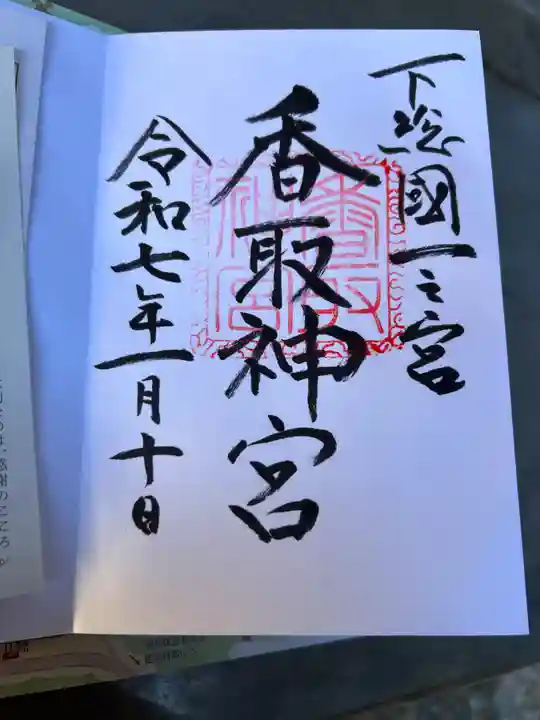 下総國一之宮
香取神宮
令和七年一月十日
香取神宮
感謝のこころ